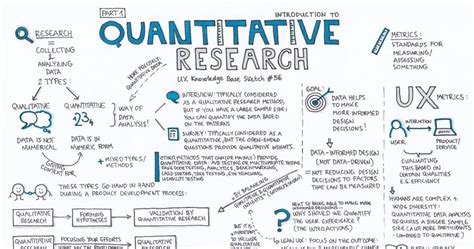 PART 1
INTRODUCTION TO
QUANTITATIVE
RESEARCH
UX Knowledge Base Sketch #56
RESEARCH
= COLLECTING
& ANALYZING
DATA
2 TYPES:
QUALITATIVE
QUANTITATIVE
DATA IS NOT
NUMERICAL
DATA IS IN
NUMERIC FORM
WAY OF
DATA
ANALYSIS!
MORE PRECISELY:
QUANTITATIVE DATA
GIVING
CONTEXT FOR
MIXED TYPES/
METHODS
THESE TYPES GO HAND IN HAND
DURING A PRODUCT DEVELOPMENT PROCESS:
QUALITATIVE
RESEARCH
FORMING
HYPOTHESES
VALIDATION BY
QUANTITATIVE RESEARCH
QUANTITATIVE
RESEARCH
FOCUSING YOUR EFFORTS
QUALITATIVE
RESEARCH
INTERVIEW: TYPICALLY CONSIDERED
AS A QUALITATIVE RESEARCH METHOD,
BUT IF YOU HAVE A LARGE SAMPLE SIZE,
YOU CAN QUANTIFY THE DATA BASED
ON THE PATTERNS
SURVEY: TYPICALLY CONSIDERED AS
QUANTITATIVE, BUT THE OPEN-ENDED
QUESTIONS PROVIDE QUALITATIVE INSIGHTS.
OTHER METHODS THAT CAN (OR MAINLY) PROVIDE
QUANTITATIVE DATA: A/B TESTING OR MULTIVARIATE TESTING,
CARD SORTING, ANALYTICS, BENCHMARKING,
TREE TESTING, EYE TRACKING,
USABILITY TESTING
GOAL:
DATA HELPS
TO MAKE
MORE INFORMED
DESIGN
DECISIONS!
DATA-INFORMED DESIGN
(NOT DATA-DRIVEN)
NOT REDUCING DESIGN
DECISIONS TO FACTORS
THAT CAN BE MEASURED
NEXT TO BEING ABLE TO MAKE
DATA-INFORMED DECISIONS -
WHY SHOULD WE QUANTIFY
THE USER EXPERIENCE?
(OR THE INTERACTIONS)
LEAN UX: FOCUS ON THE OUTCOME:
METRICS:
STANDARDS FOR
MEASURING/
ASSESSING
SOMETHING
UX METRICS:
INTERACTION
USER
PRODUCT
SERVICE
EVALUATING
THIS BASED ON
CERTAIN QUALITIES
E.G. EFFICIENCY
HUMANS ARE COMPLEX +
WIDE DIVERSITY:
QUANTITATIVE DATA ANALYSIS
REQUIRES A BIGGER SAMPLE